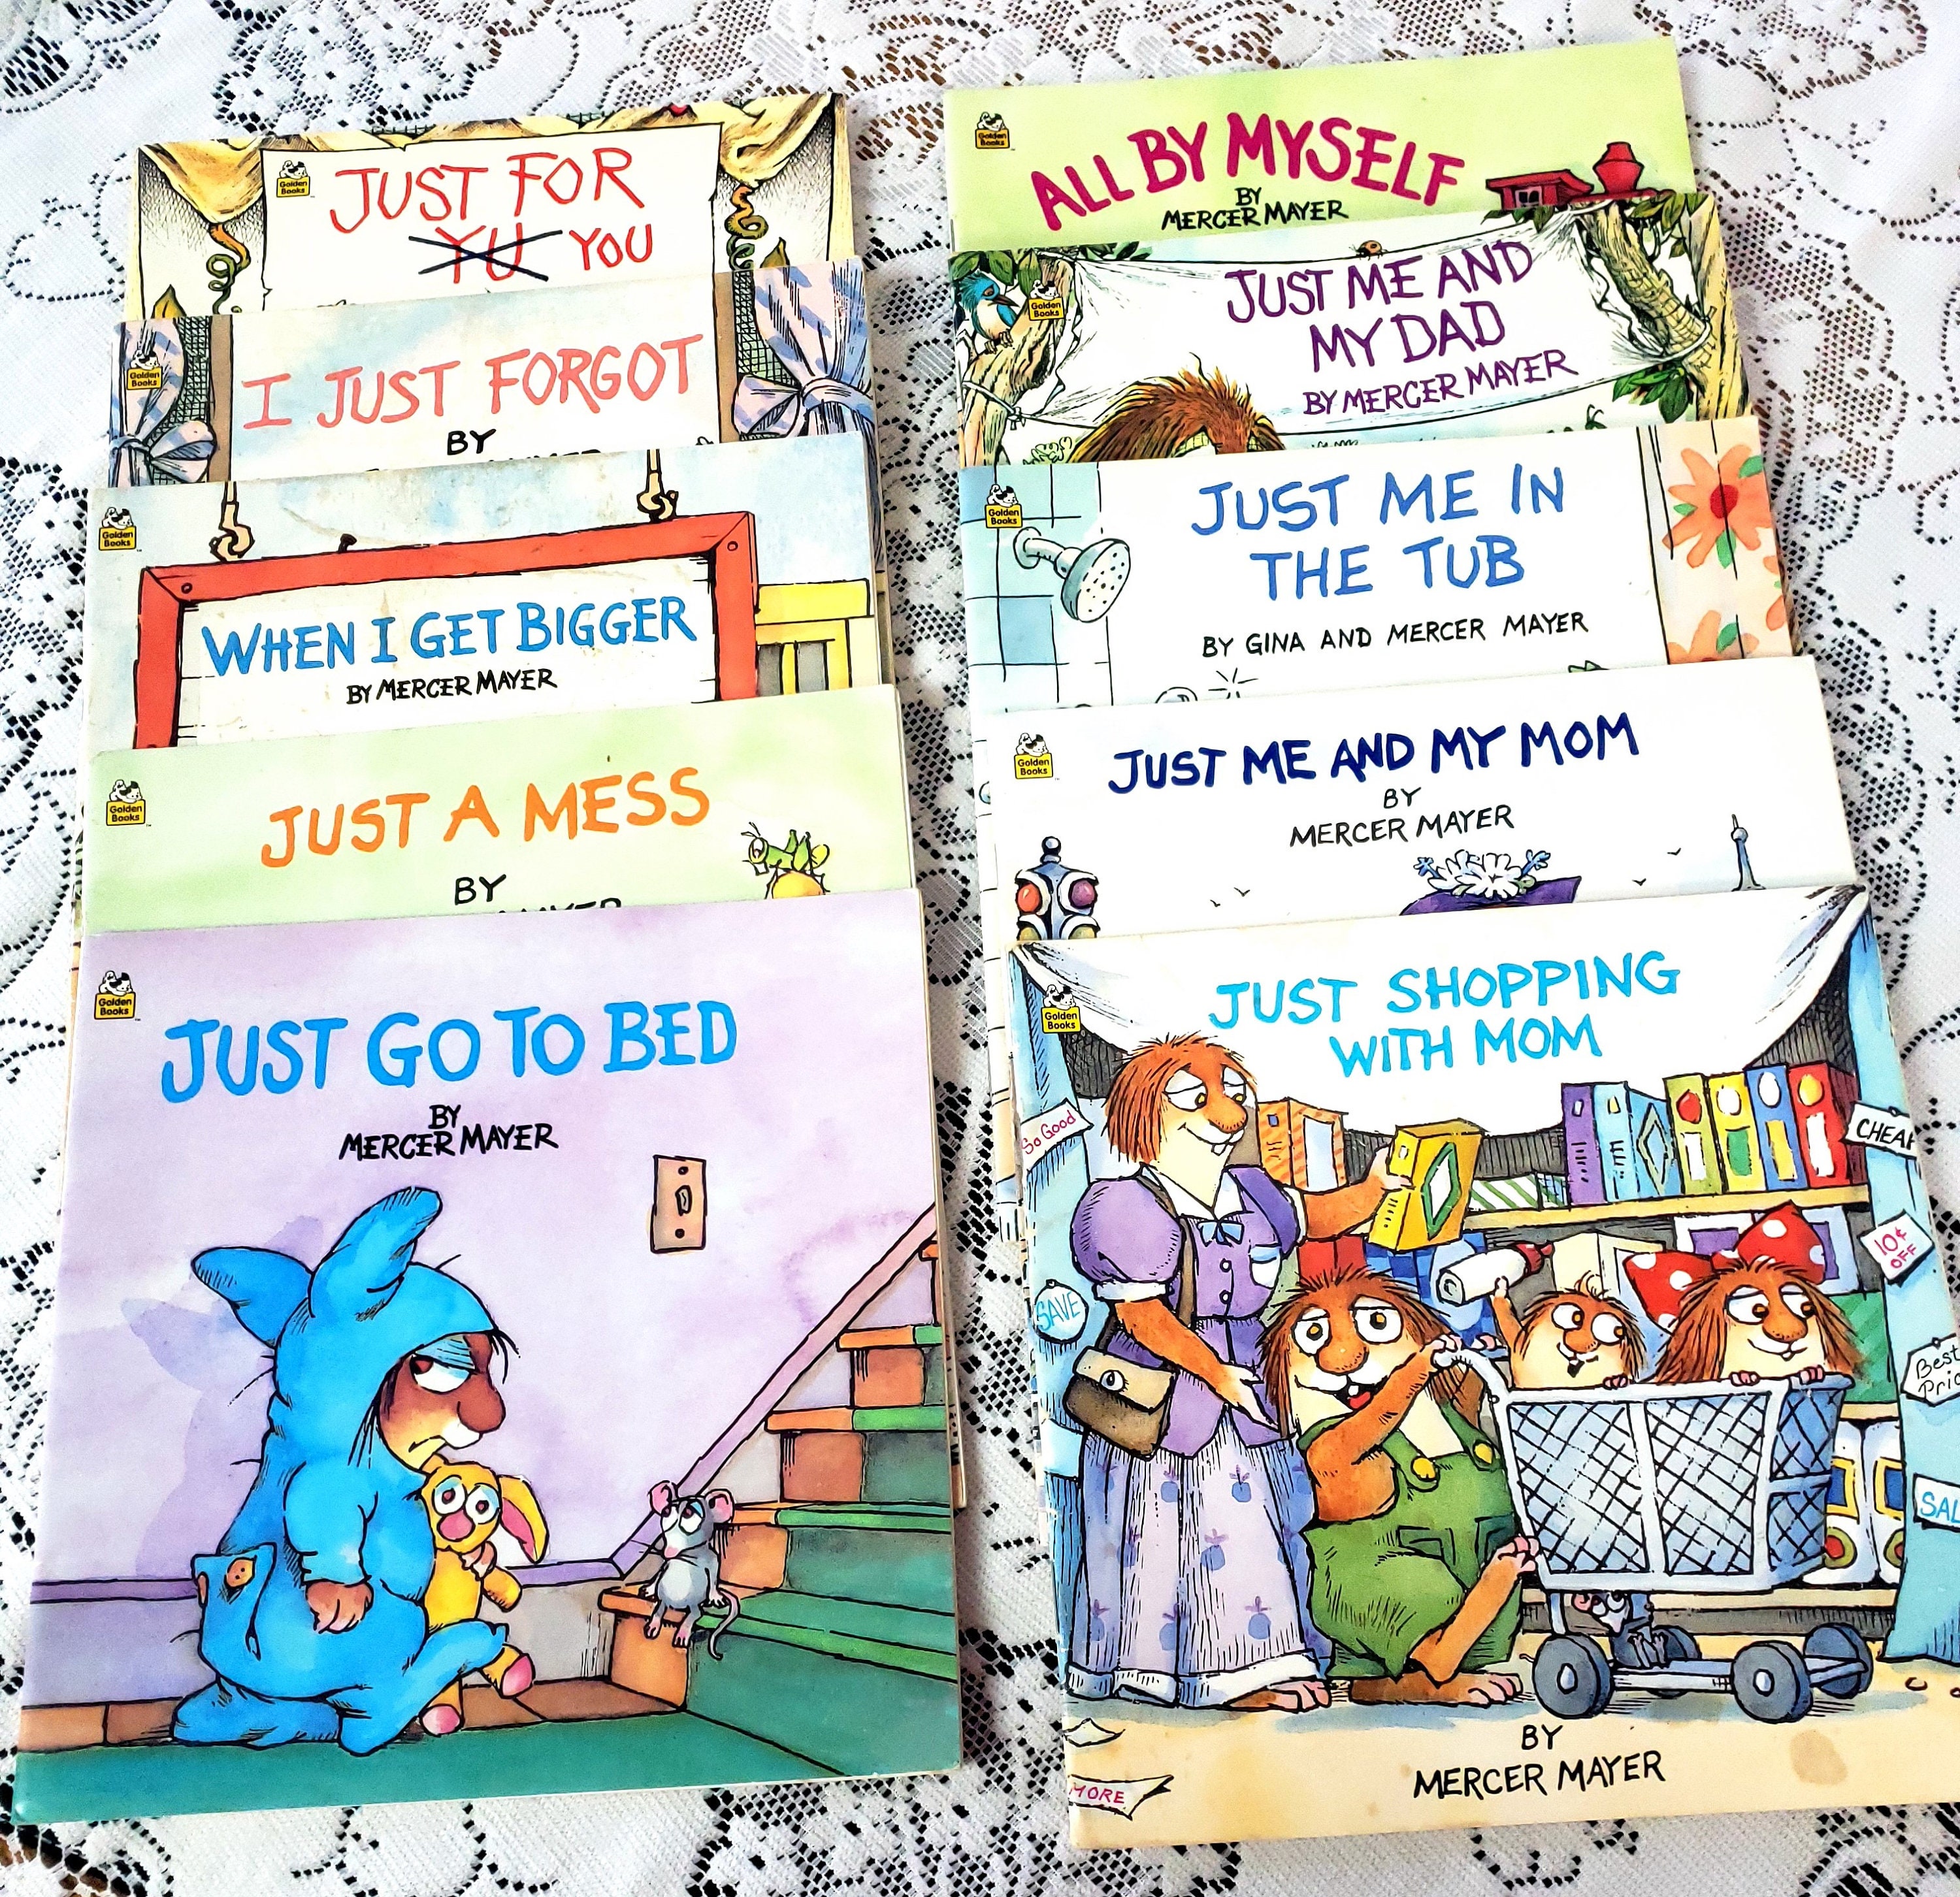 Golden
Books
JUST FOR
YU YOU
Golden
Books
I JUST FORGOT
BY
Golden
Books
WHEN I GET BIGGER
BY MERCER MAYER
Golden
Books
JUST A MESS
BY
MAYER
Golden
Books
JUST GO TO BED
BY
MERCER MAYER
Golden
Books
ALL BY MYSELF
BY
MERCER MAYER
Golden
Books
JUST ME AND
MY DAD
BY MERCER MAYER
Golden
Books
JUST ME IN
THE TUB
BY GINA AND MERCER MAYER
Golden
Books
JUST ME AND MY MOM
BY
MERCER MAYER
Golden
Books
JUST SHOPPING
WITH MOM
So Good
CHEAP
10¢
OFF
SAVE
Best
Pric
SAL
BY
MERCER MAYER
MORE